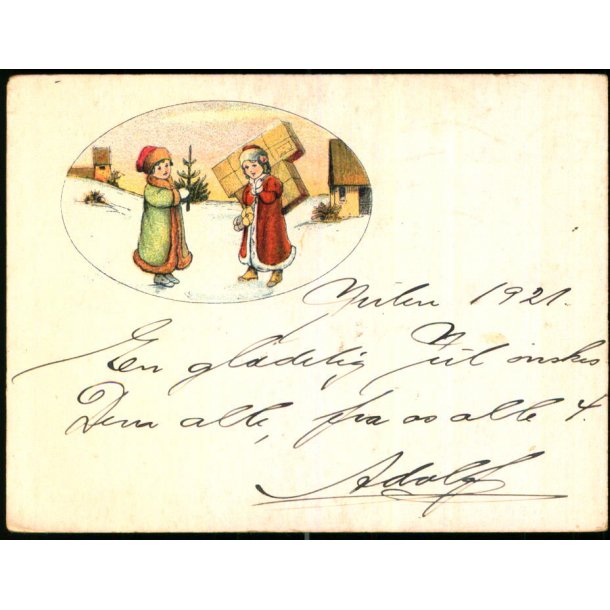 Julen 1921.
En glædelig Jul ønskes
Dem alle, fra os alle 4.
Adolf